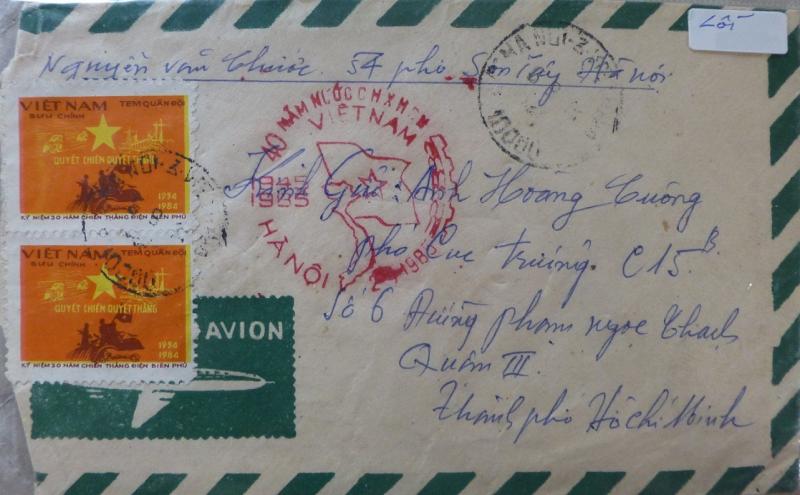 Lỗi
HÀ NỘI-Z.V
10000
Nguyễn văn Chước. 54 phố Sơn Tây Hà nội
VIỆT NAM TEM QUÂN ĐỘI
BƯU CHÍNH
QUYẾT CHIẾN QUYẾT THẮNG
1954
1984
KỶ NIỆM 30 NĂM CHIẾN THẮNG ĐIỆN BIÊN PHỦ
40 NĂM NƯỚC CHXHCN
VIỆTNAM
1945
1985
HÀNỘI
Kính Gửi: Anh Hoàng Cường
phó Cục trưởng. C15B
Số 6 Đường phạm ngọc Thạch
Quận III
Thành phố Hồ Chí Minh
VIỆT NAM TEM QUÂN ĐỘI
BƯU CHÍNH
QUYẾT CHIẾN QUYẾT THẮNG
1954
1984
KỶ NIỆM 30 NĂM CHIẾN THẮNG ĐIỆN BIÊN PHỦ
AVION